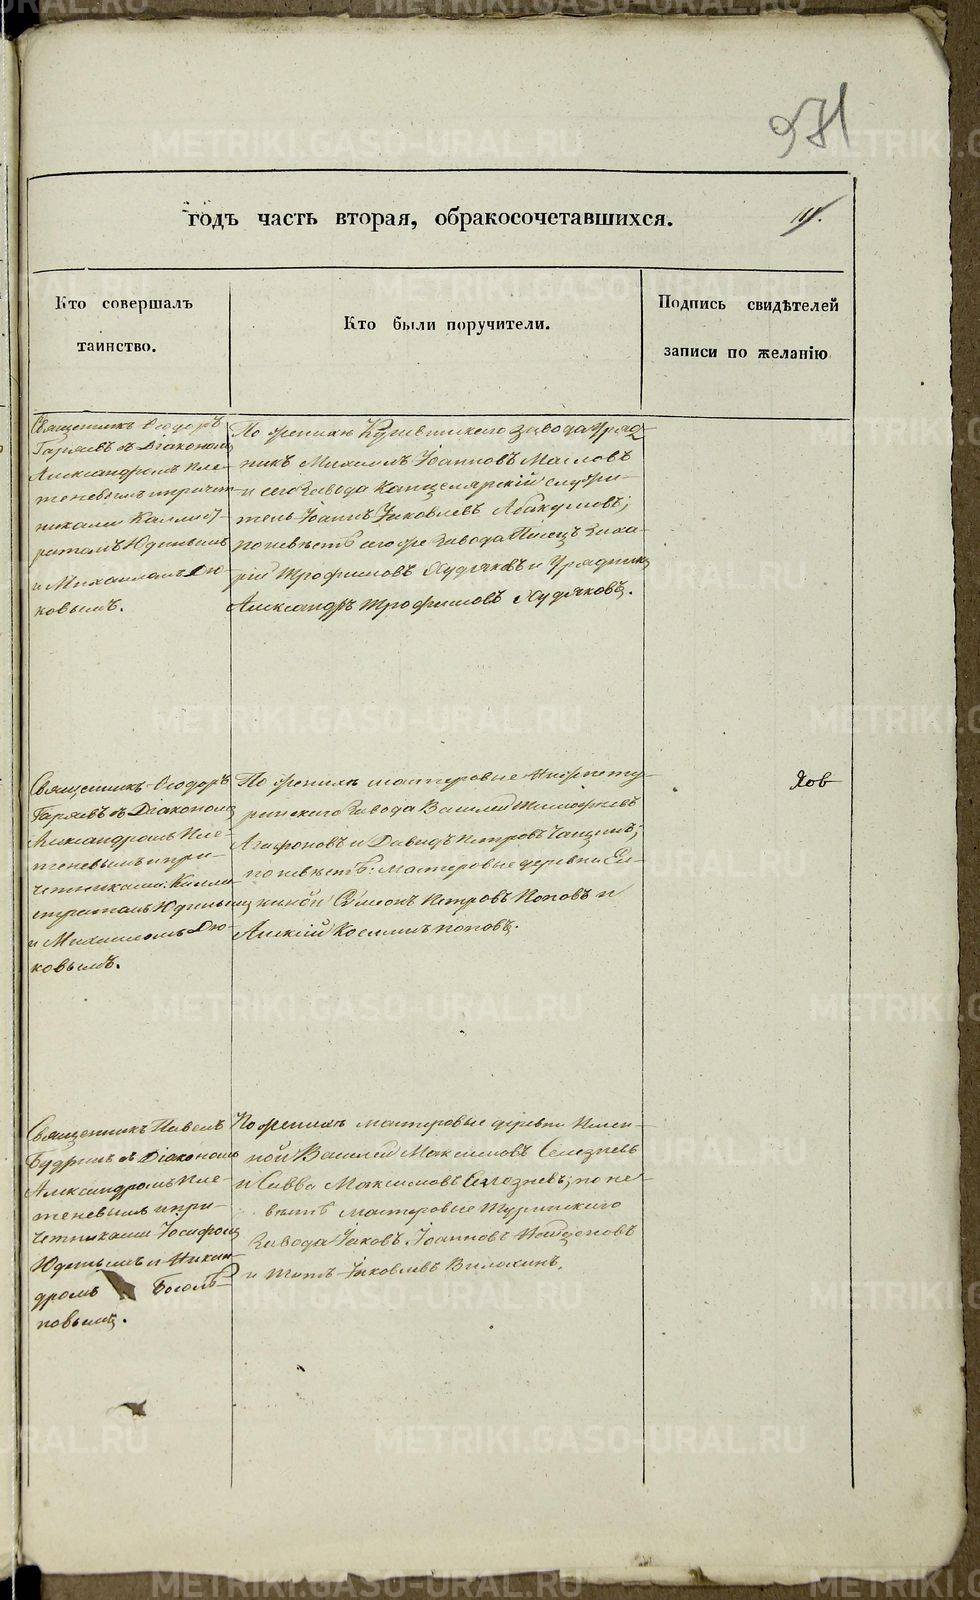 571
годъ часть вторая, обракосочетавшихся.
Кто совершалъ
таинство.
Кто были поручители.
Подпись свидѣтелей
записи по желанію
Священникъ Ѳеодоръ
Гаряевъ съ Діакономъ
Александромъ Пле-
теневымъ и причет-
никами Каллист-
ратомъ Юдинымъ
и Михаиломъ Дю-
ковымъ.
По женихѣ Кушвинскаго завода Уряд-
никъ Михаилъ Іоанновъ Масловъ
и сего завода Канцелярскій служи-
тель Іоаннъ Яковлевъ Абакумовъ;
по невѣстѣ сего же завода Писецъ Заха-
рій Трофимовъ Худяковъ и Урядникъ
Александръ Трофимовъ Худяковъ.
Священникъ Ѳеодоръ
Гаряевъ съ Діакономъ
Александромъ Пле-
теневымъ и при-
четниками: Калли-
стратомъ Юдинымъ
и Михаиломъ Дю-
ковымъ.
По женихѣ мастеровые Нижнету-
ринскаго завода Василій Тимофеевъ
Агафоновъ и Давидъ Петровъ
по невѣстѣ: мастеровые деревни Ел-
киной Симеонъ Петровъ Поповъ и
Алексій Косминъ Поповъ.
Священникъ Павелъ
Будринъ съ Діакономъ
Александромъ Пле-
теневымъ и при-
четниками Іосифомъ
Юдинымъ и Никан-
дромъ Боголѣ-
повымъ.
По женихѣ мастеровые деревни
Василій Максимовъ Селезневъ
и Савва Максимовъ Селезневъ; по не-
вѣстѣ мастеровые Туринскаго
завода Яковъ Іоанновъ Найденовъ
и Яковлевъ